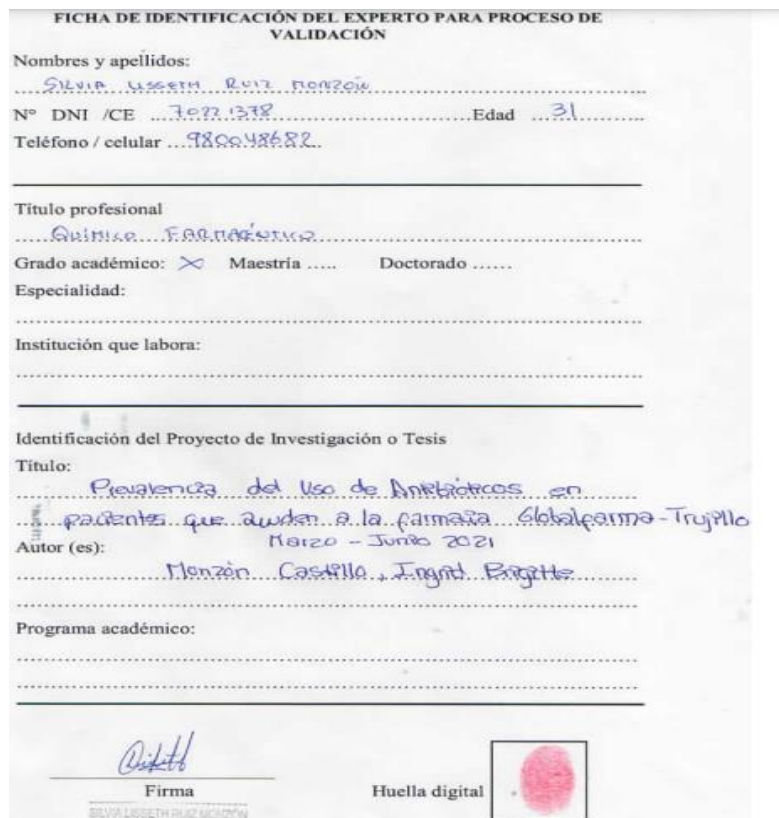 FICHA DE IDENTIFICACIÓN DEL EXPERTO PARA PROCESO DE
VALIDACIÓN
Nombres y apellidos:
SILVIA LISSETH RUIZ MONZÓN
N° DNI /CE ...70221378...Edad ...31...
Teléfono / celular ...980048682...
Título profesional
QUÍMICO FARMACÉUTICO
Grado académico: X Maestría ..... Doctorado ......
Especialidad:
Institución que labora:
Identificación del Proyecto de Investigación o Tesis
Título:
Prevalencia del Uso de Antibióticos en
pacientes que acuden a la farmacia Globalfarma-Trujillo
Marzo - Junio 2021
Autor (es):
Monzón Castillo, Ingrid Brigitte
Programa académico:
Firma
Huella digital
SILVIA LISSETH RUIZ MONZÓN